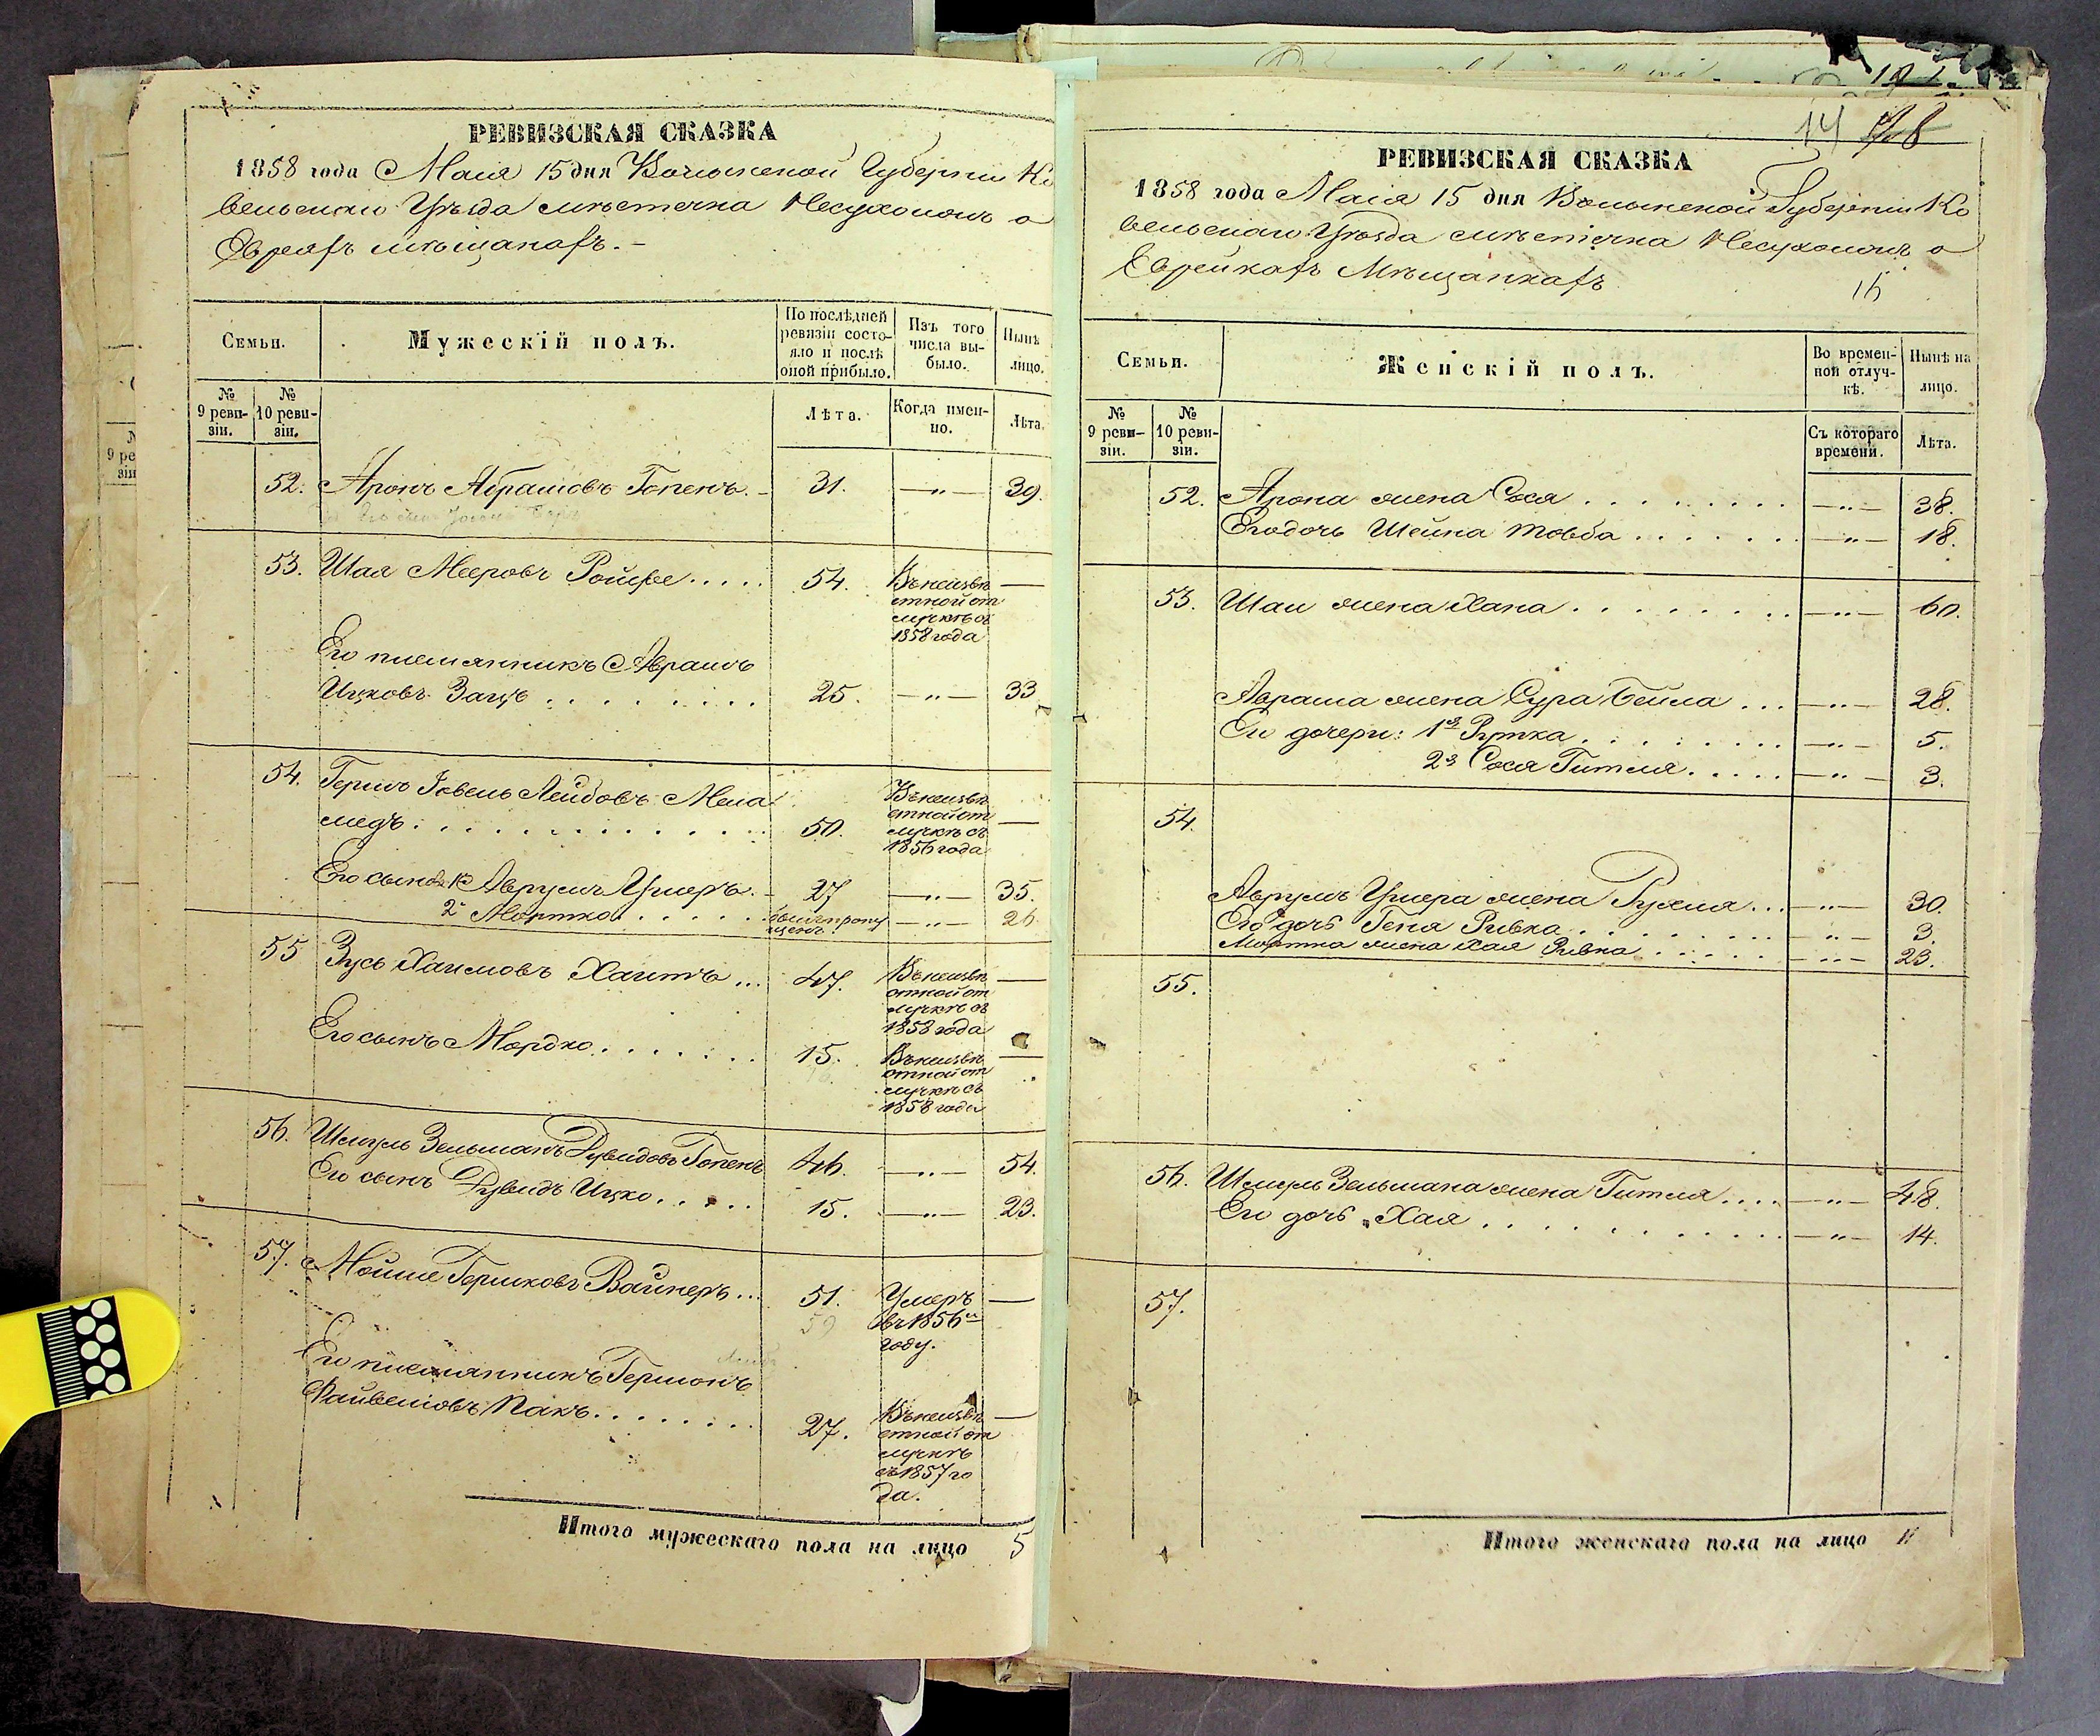 РЕВИЗСКАЯ СКАЗКА
1858 года Маія 15 дня Волынской Губерніи Ко
вельскаго Уѣзда мѣстечка Несухоижъ о
Евреяхъ мѣщанахъ. –
Семьи.
Мужескій полъ.
По послѣдней ревизіи состояло и послѣ оной прибыло.
Изъ того числа выбыло.
Нынѣ лицо.
№ 9 ревизіи.
№ 10 ревизіи.
Лѣта.
Когда именно.
Лѣта.
52. Аронъ Абрамовъ Гопенъ. 31. —"— 39.
53. Шая Мееровъ Ройфе..... 54. Въ неизвѣ —
стной от
лучкѣ съ
1858 года
Его племянникъ Аврамъ
Ицковъ Зацъ . . . . . . . . 25. —"— 33
54. Гершъ Іовель Лейбовъ Мела
медъ. . . . . . . . . . . . . 50. Въ неизвѣ —
стной от
лучкѣ съ
1856 года
Его сыновья 1й Аврумъ Ушеръ. – 27 —"— 35.
2й Мортко. . . . . былъ пропу —"— 26
щенъ.
55 Зусь Хаимовъ Хаитъ ... 47. Въ неизвѣ —
стной от
лучкѣ съ
1858 года
Его сынъ Мордко. . . . . . . 15. Въ неизвѣ —
стной от
лучкѣ съ
1858 года
56. Шмуль Зельманъ Дувидовъ Гопенъ 46. —"— 54.
Его сынъ Дувидъ Ицко. . . . . 15. —"— 23.
57. Мойше Гершковъ Вайнеръ... 51. Умеръ —
59 въ 1856м
году.
Его племянникъ Гершонъ
Файвелювъ Пакъ. . . . . . . . 27. Въ неизвѣ —
стной от
лучкѣ
съ 1857 го
да.
Итого мужескаго пола на лицо 5
14 78
РЕВИЗСКАЯ СКАЗКА
1858 года Маія 15 дня Волынской Губерніи Ко
вельскаго Уѣзда мѣстечка Несухоижъ о
Еврейкахъ Мѣщанкахъ
16
Семьи.
Женскій полъ.
Во временной отлучкѣ.
Нынѣ на лицо.
№ 9 ревизіи.
№ 10 ревизіи.
Съ котораго времени.
Лѣта.
52. Арона жена Сося . . . . . . . . . —"— 38.
Его дочь Шейна Товба . . . . . . . —"— 18.
53. Шаи жена Хана . . . . . . . . . —"— 60.
Аврама жена Сура Бейла ... —"— 28.
Его дочери: 1я Рутка. . . . . . . . . —"— 5.
2я Сося Гитля. . . . . —"— 3.
54.
Аврумъ Ушера жена Рухля... —"— 30.
Его дочь Геня Ривка. . . . . . . . . —"— 3.
Мортка жена Хая Ривка . . . . . . —"— 23.
55.
56. Шмуль Зельмана жена Гитля.... —"— 48.
Его дочь Хая . . . . . . . . . . . . —"— 14.
57.
Итого женскаго пола на лицо 11